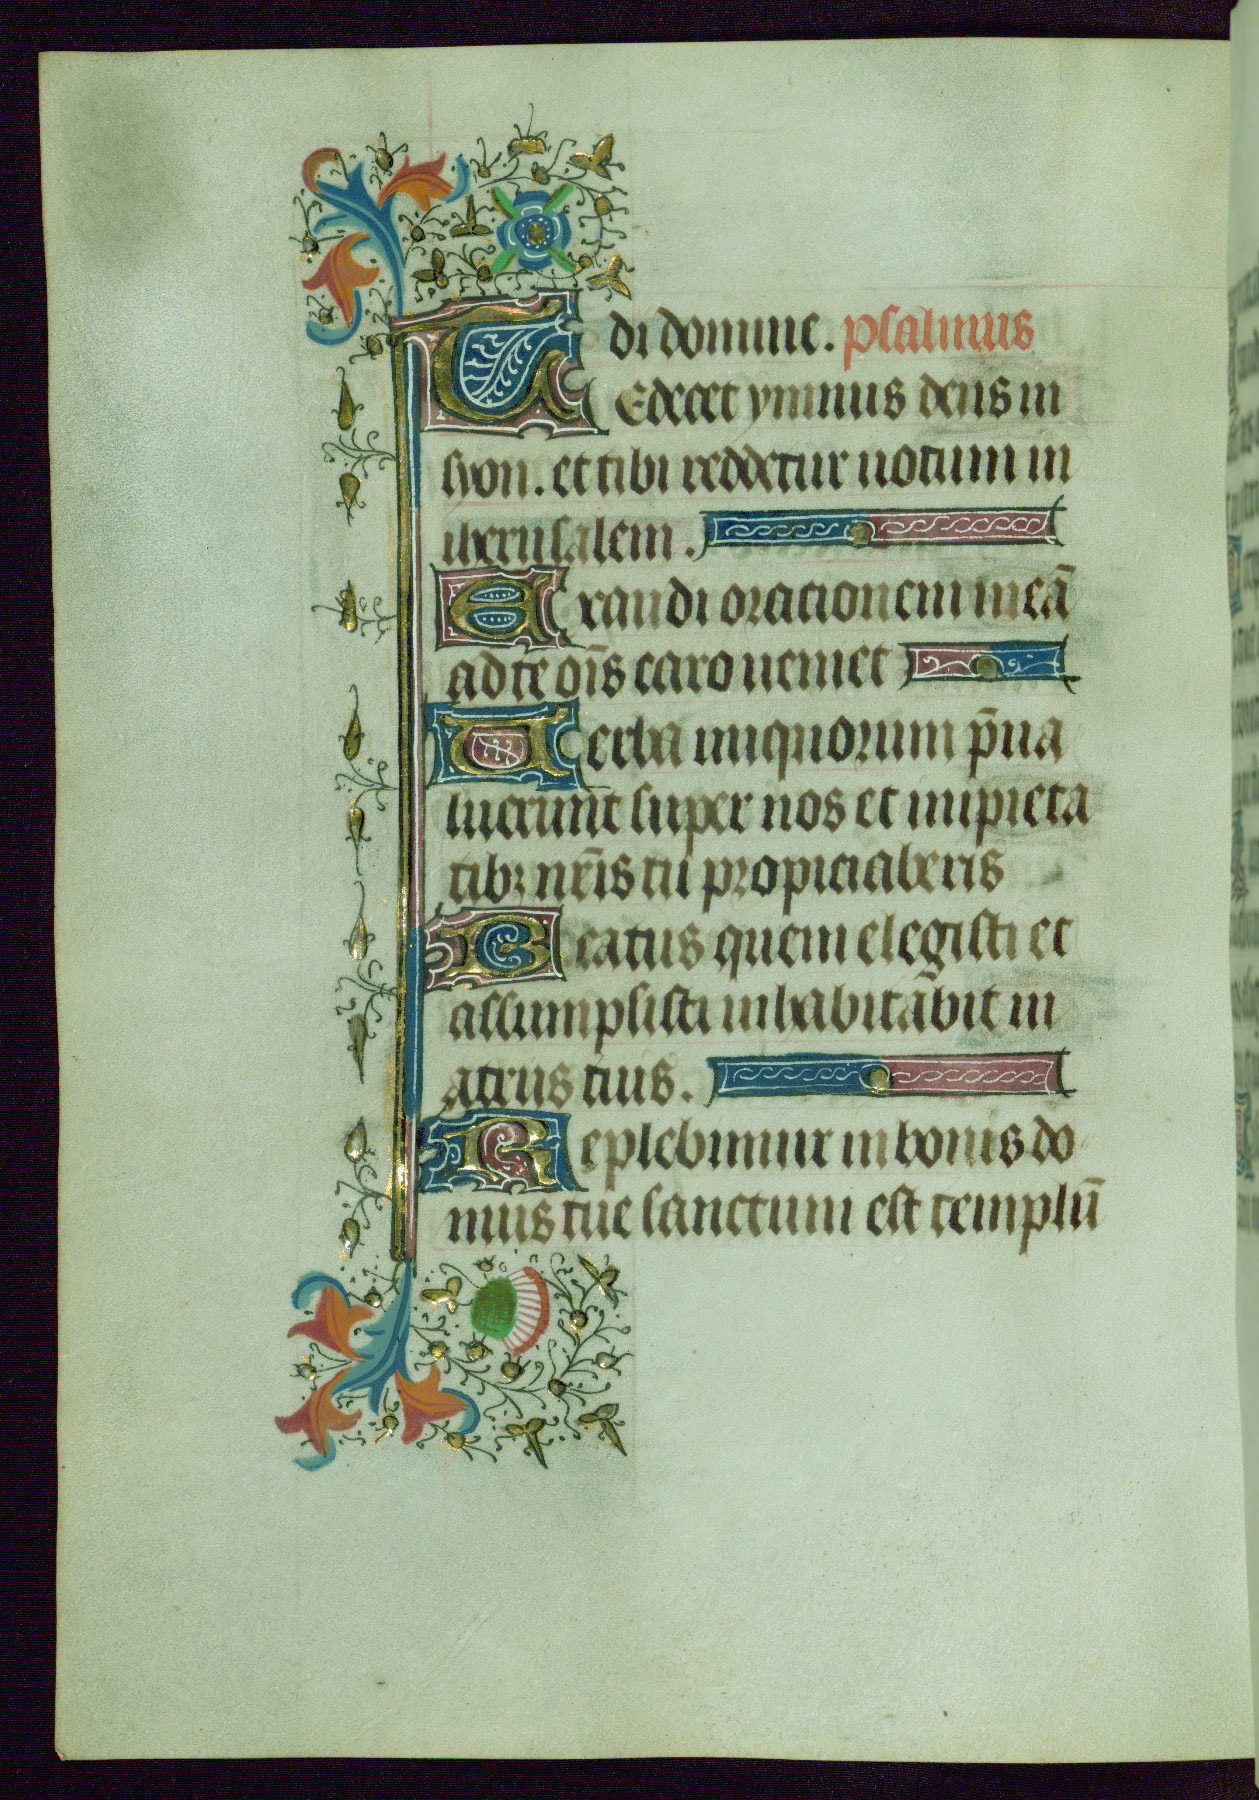 di domine. psalmus
TEdecet ymnus deus in
syon. et tibi reddetur uotum in
iherusalem.
Exaudi orationem meā
ad te oīs caro ueniet
Uerba iniquorum p̄ua
luerunt super nos et impieta
tibꝫ nr̄is tu propiciaberis
Beatus quem elegisti et
assumpsisti inhabitābit in
atriis tuis.
Replebimur in bonis do
mus tue sanctum est templū